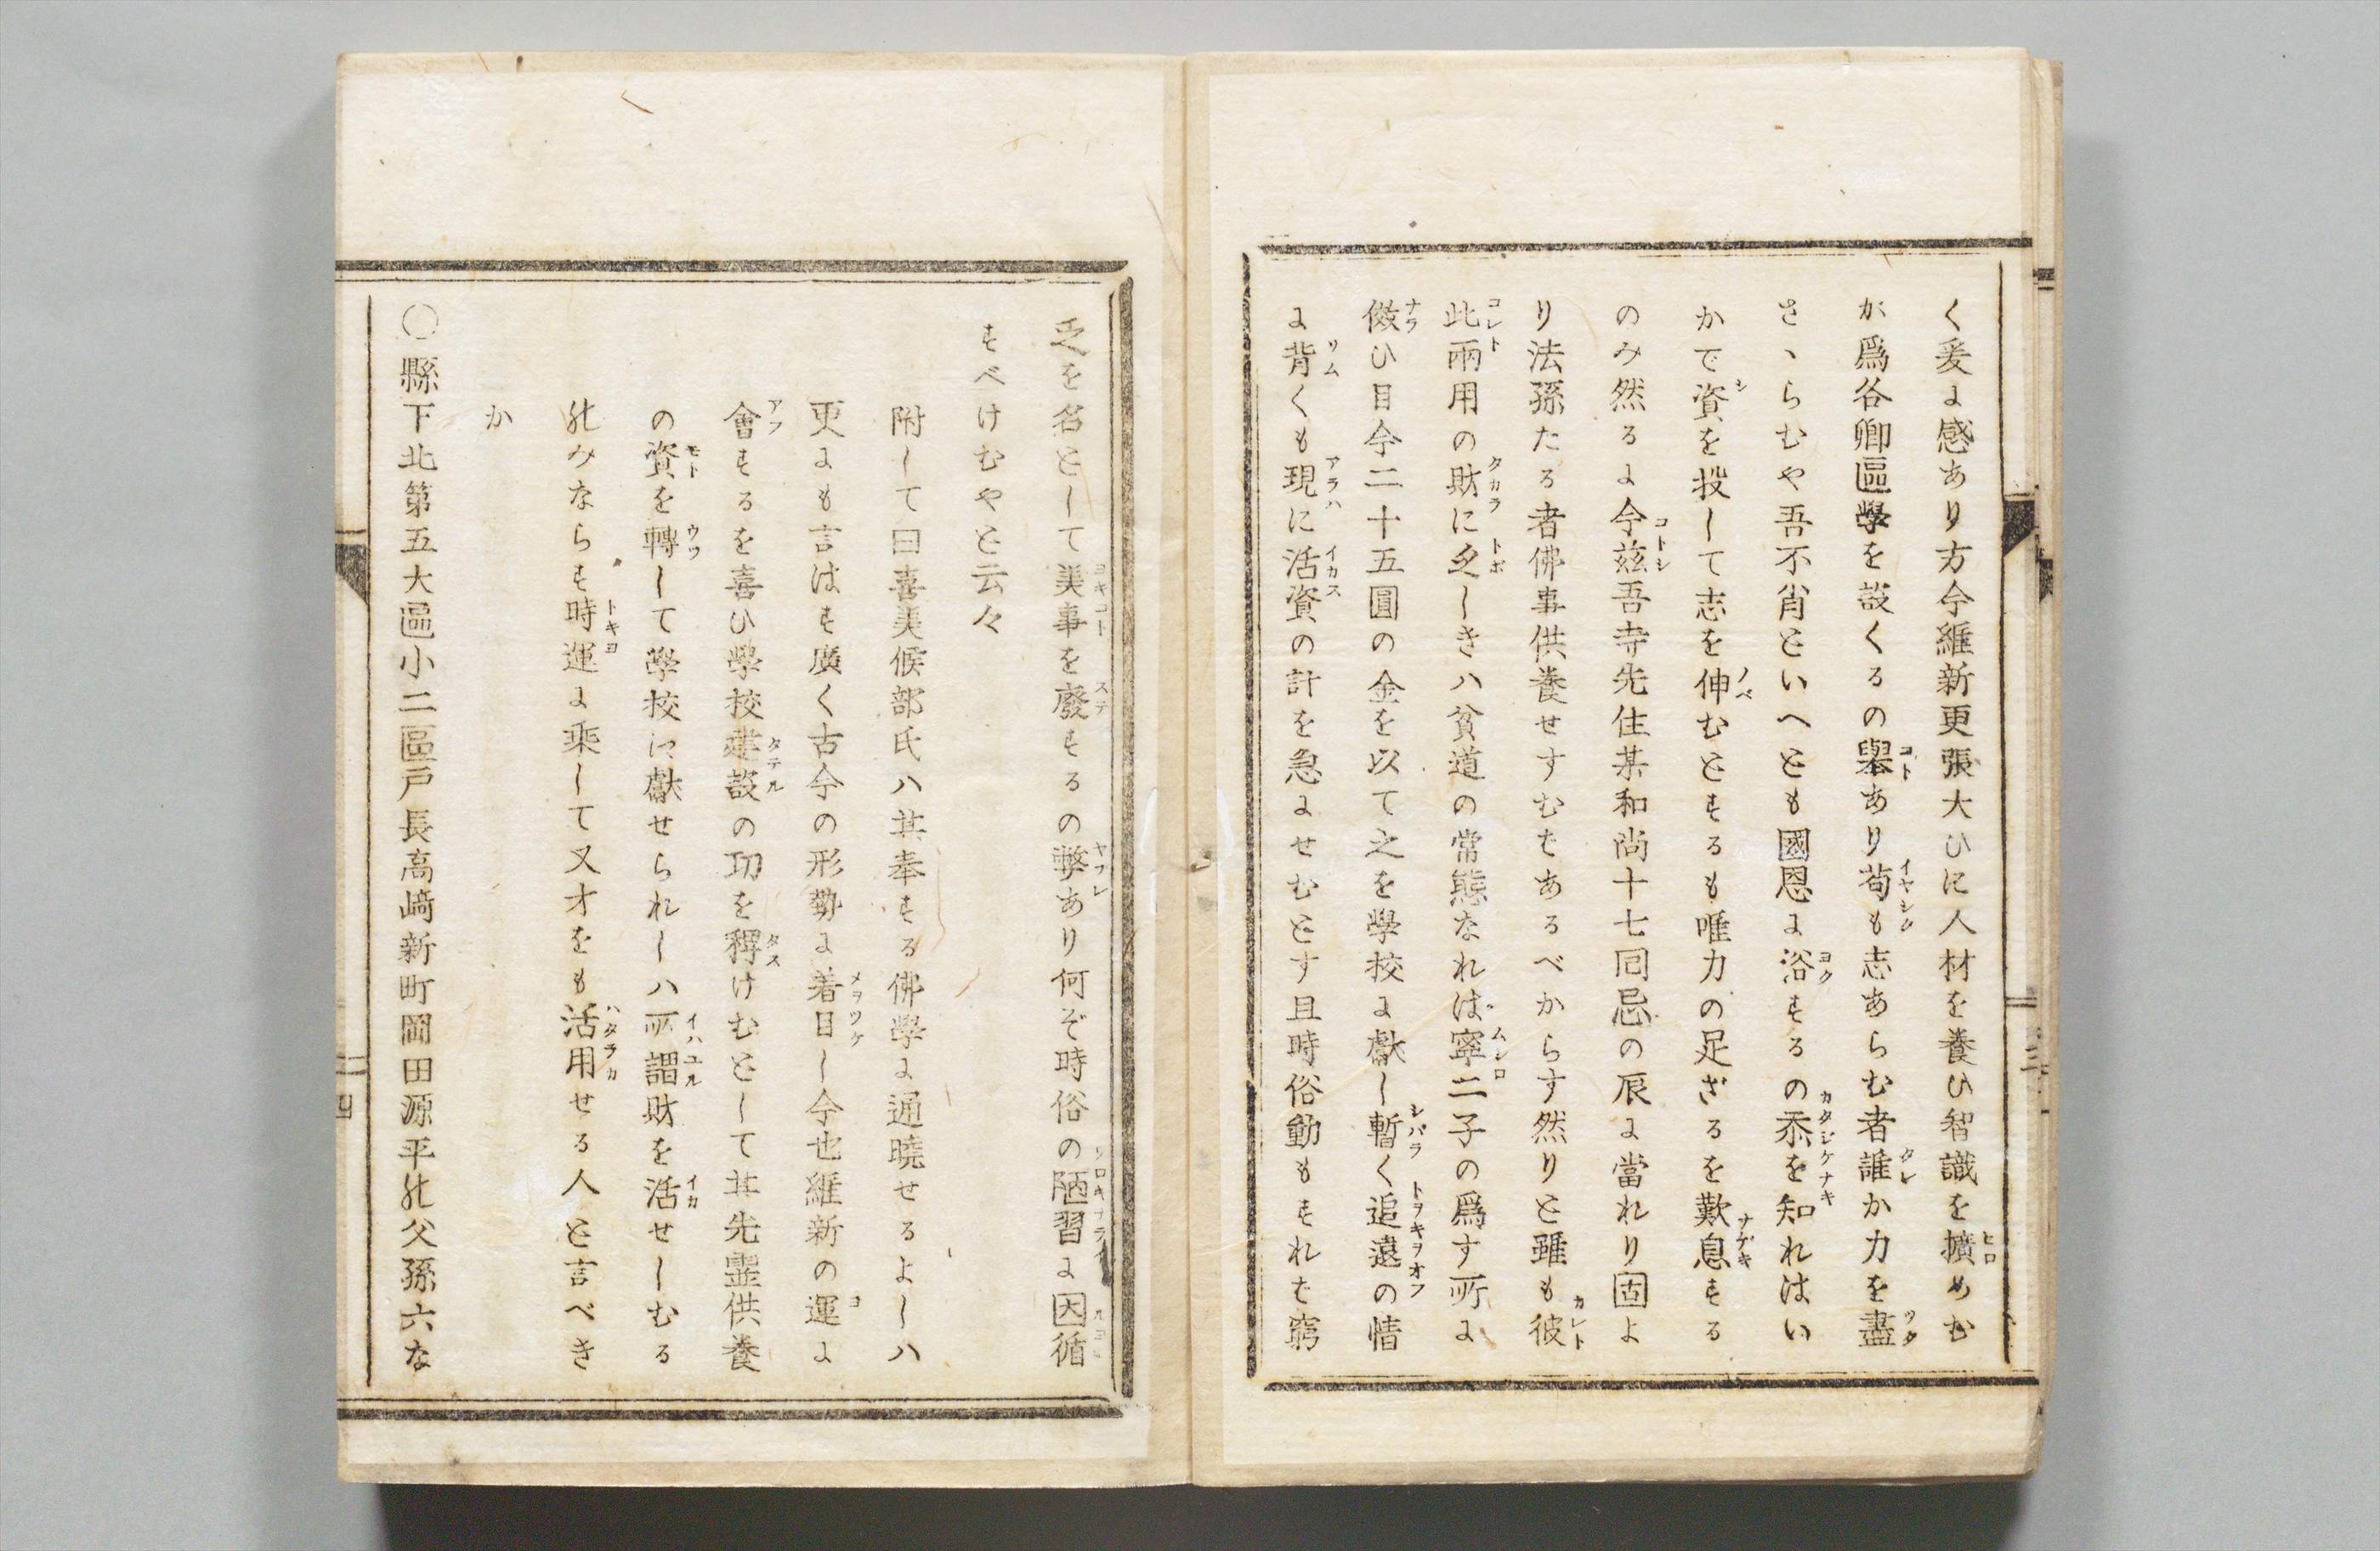 く爰に感あり方今維新更張大ひに人材を養ひ智識を擴めむ
が爲各郷區學を設くるの擧あり苟も志あらむ者誰か力を盡
さゝらむや吾不肖といへとも國恩に浴するの忝を知れはい
かで資を投して志を伸むとするも唯力の足ざるを歎息する
のみ然るに今茲吾寺先住某和尚十七回忌の辰に當れり固よ
り法孫たる者佛事供養せすむばあるべからす然りと雖も彼
此兩用の財に乏しきハ貧道の常態なれば寧二子の爲す所に
傚ひ目今二十五圓の金を以て之を學校に獻し暫く追遠の情
に背くも現に活資の計を急にせむとす且時俗動もすれば窮
乏を名として美事を廢するの弊あり何ぞ時俗の陋習に因循
すべけむやと云々
附して曰喜美候部氏ハ其奉する佛學に通曉せるよしハ
更にも言はず廣く古今の形勢に着目し今也維新の運に
會するを喜ひ學校建設の功を稗けむとして其先靈供養
の資を轉して學校に獻せられしハ所謂財を活せしむる
のみならず時運に乘して又才をも活用せる人と言べき
か
〇縣下北第五大區小二區戸長高﨑新町岡田源平の父孫六な